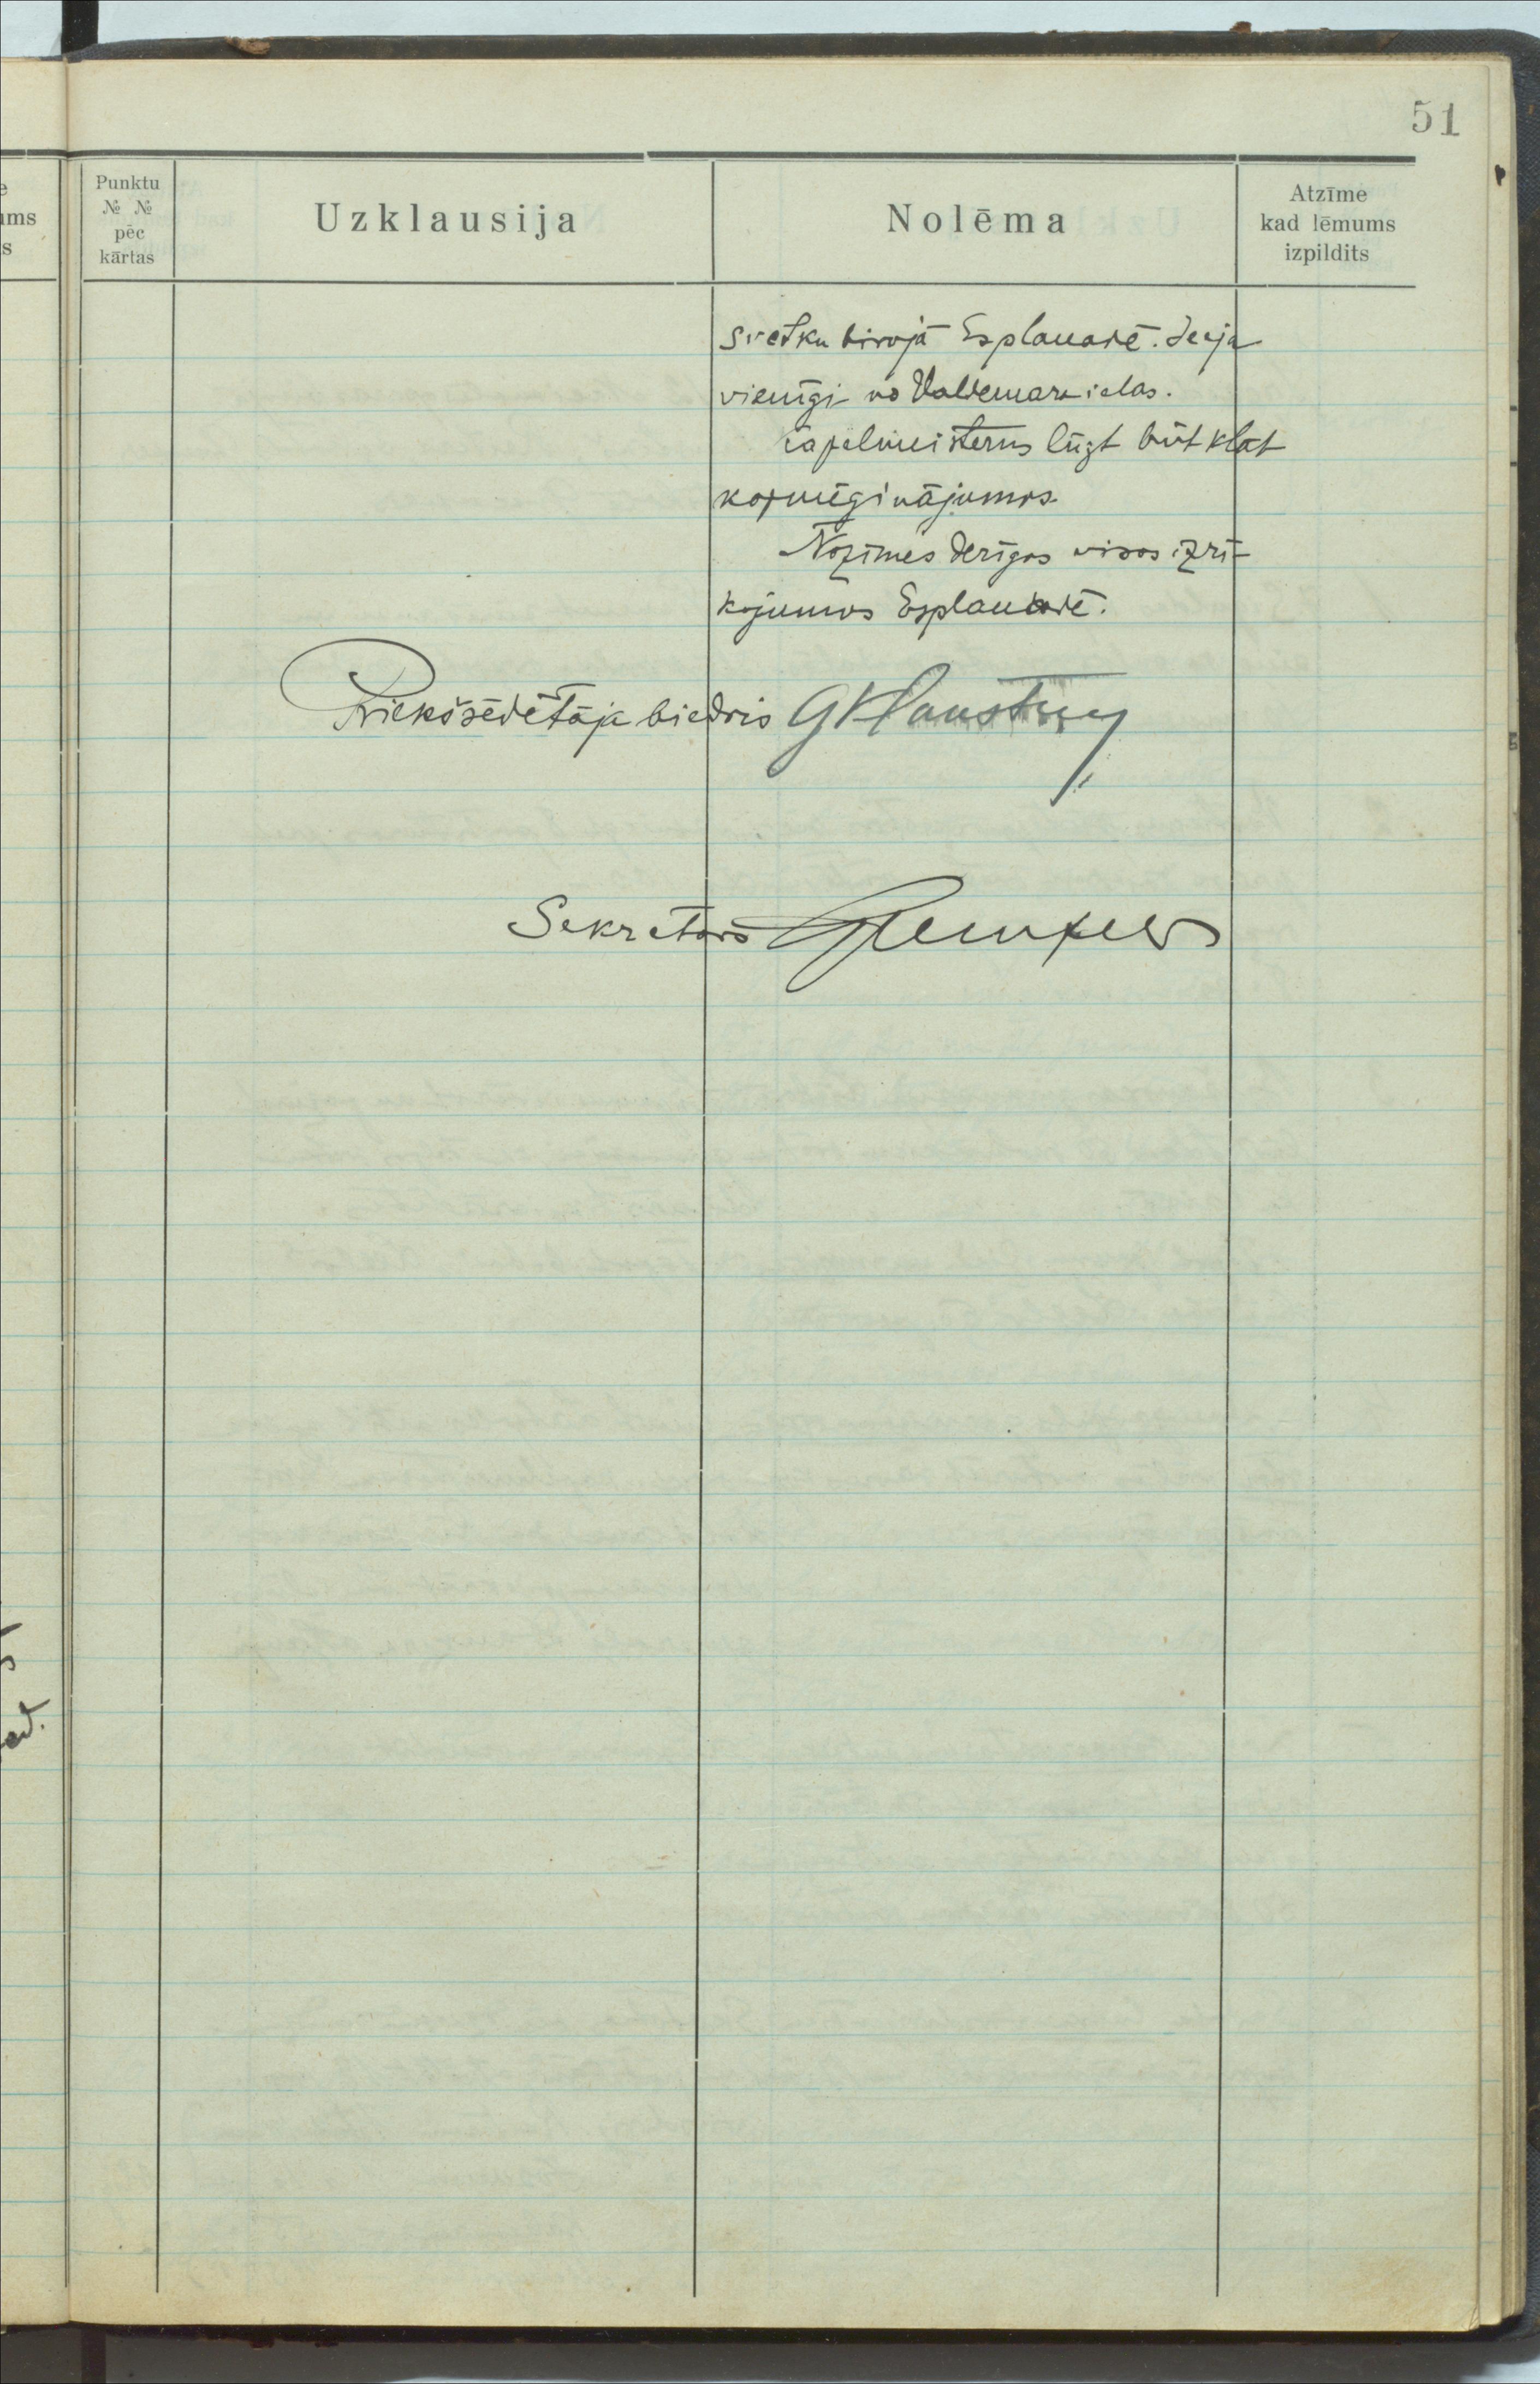 51
Punktu № № pēc kārtas
Uzklausija
Nolēma
Atzīme kad lēmums izpildits
svētku birojā Esplanadē. Ieeja
vienīgi no Valdemara ielas.
Kapelmeisterus lūgt būt klāt
kopmēģinājumos.
Nozīmes derīgas visos izrī-
kojumos Esplanadē.
Priekšsēdētāja biedris
Sekretars